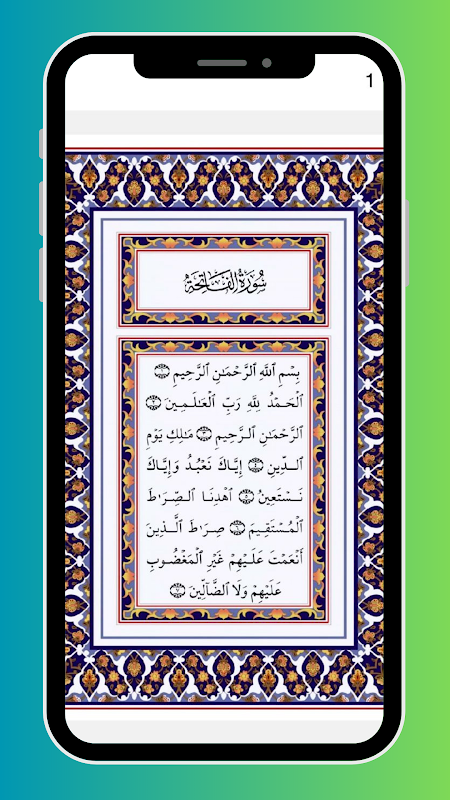 1
سُورَةُ الفَاتِحَةِ
بِسْمِ ٱللَّهِ ٱلرَّحْمَـٰنِ ٱلرَّحِيمِ ۝١
ٱلْحَمْدُ لِلَّهِ رَبِّ ٱلْعَـٰلَمِينَ ۝٢
ٱلرَّحْمَـٰنِ ٱلرَّحِيمِ ۝٣ مَـٰلِكِ يَوْمِ
ٱلدِّينِ ۝٤ إِيَّاكَ نَعْبُدُ وَإِيَّاكَ
نَسْتَعِينُ ۝٥ ٱهْدِنَا ٱلصِّرَٰطَ
ٱلْمُسْتَقِيمَ ۝٦ صِرَٰطَ ٱلَّذِينَ
أَنْعَمْتَ عَلَيْهِمْ غَيْرِ ٱلْمَغْضُوبِ
عَلَيْهِمْ وَلَا ٱلضَّآلِّينَ ۝٧